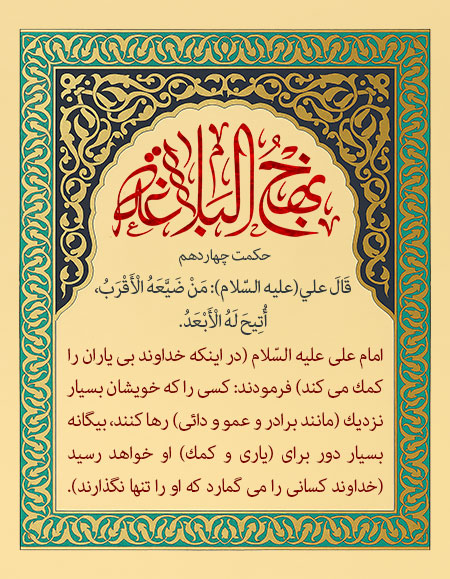 نهج البلاغة
حکمت چهاردهم
قَالَ علي(علیه السّلام): مَنْ ضَيَّعَهُ الْأَقْرَبُ،
أُتِيحَ لَهُ الْأَبْعَدُ.
امام علی علیه السّلام (در اینکه خداوند بی یاران را
کمك می کند) فرمودند: کسی را که خویشان بسیار
نزدیك (مانند برادر و عمو و دائی) رها کنند، بیگانه
بسیار دور برای (یاری و کمك) او خواهد رسید
(خداوند کسانی را می گمارد که او را تنها نگذارند).